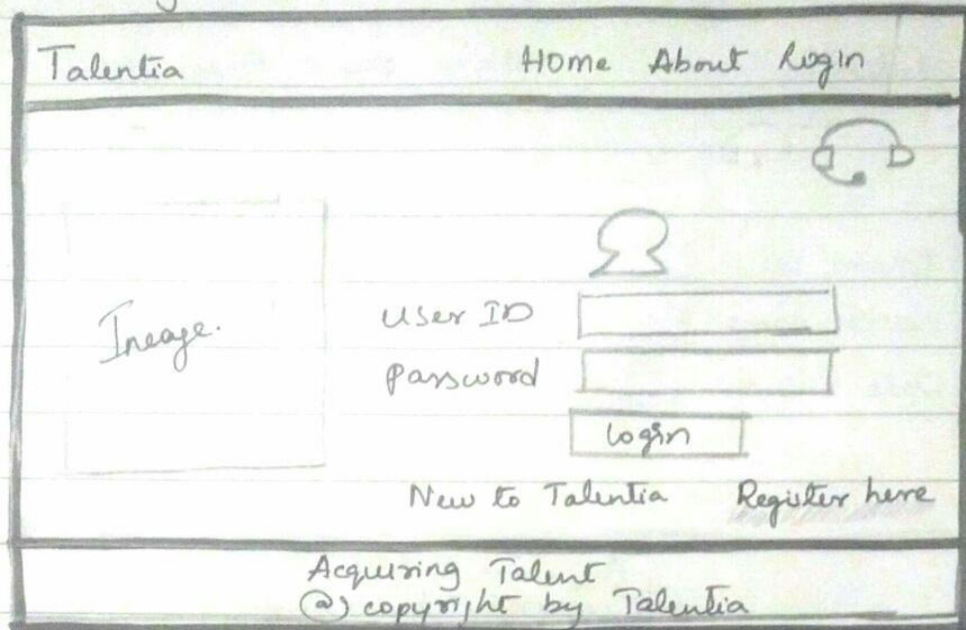 Talentia Home About Login
Image.
User ID
password
login
New to Talentia Register here
Acquiring Talent
@) copyright by Talentia